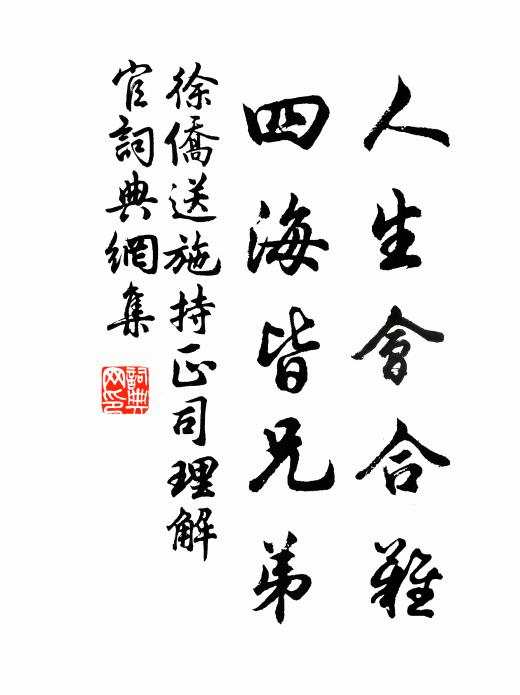 人生會合難
四海皆兄弟
徐僑送施持正司理解
官詞典網集
詞典网印